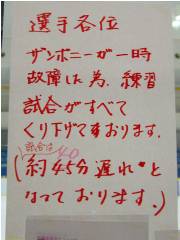 選手各位
ザンボニーが一時
故障した為、練習
試合がすべて
くり下げております。
試合は40
(約45分遅れ"と
なっております。)